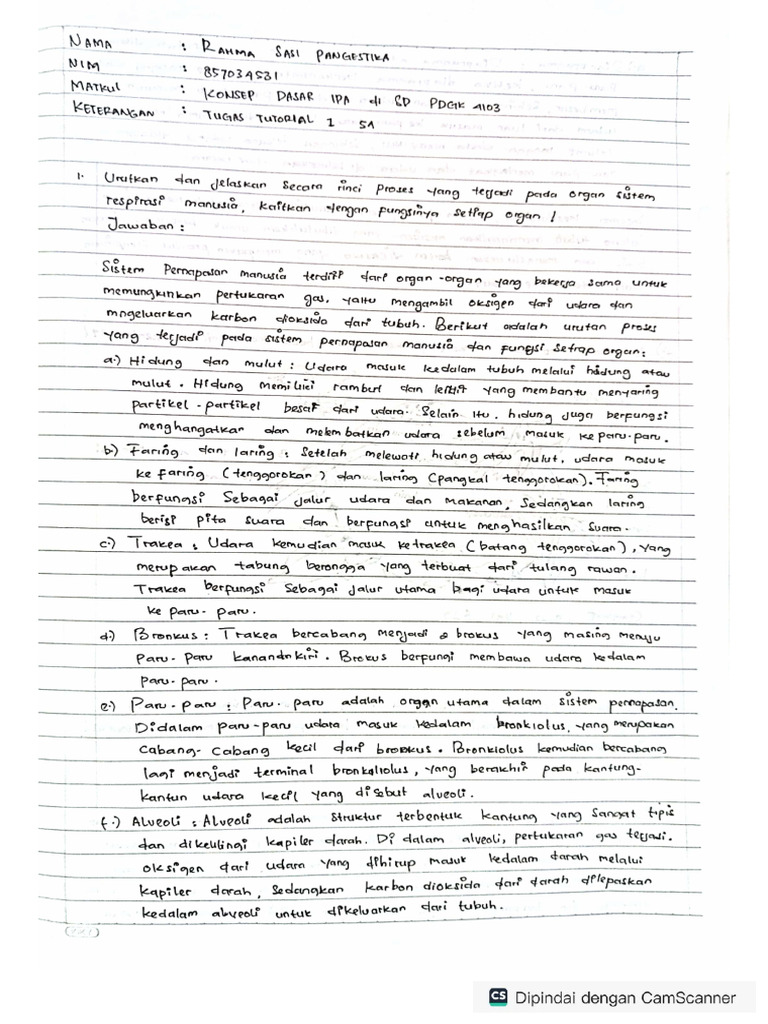 NAMA : RAHMA SASI PANGESTIKA
NIM : 857034531
MATKUL : KONSEP DASAR IPA di SD PDGK 4103
KETERANGAN : TUGAS TUTORIAL 1 5A
1. Urutkan dan jelaskan secara rinci proses yang terjadi pada organ sistem
respirasi manusia, kaitkan dengan fungsinya setiap organ !
Jawaban :
Sistem Pernapasan manusia terdiri dari organ-organ yang bekerja sama untuk
memungkinkan pertukaran gas, yaitu mengambil oksigen dari udara dan
mngeluarkan karbon dioksida dari tubuh. Berikut adalah urutan proses
yang terjadi pada sistem pernapasan manusia dan fungsi setiap organ:
a.) Hidung dan mulut : Udara masuk kedalam tubuh melalui hidung atau
mulut. Hidung memiliki rambut dan lendir yang membantu menyaring
partikel-partikel besar dari udara. Selain itu, hidung juga berfungsi
menghangatkan dan melembatkan udara sebelum masuk ke paru-paru.
b.) Faring dan laring : Setelah melewati hidung atau mulut, udara masuk
ke faring (tenggorokan) dan laring (pangkal tenggorokan). Faring
berfungsi sebagai jalur udara dan makanan, sedangkan laring
berisi pita suara dan berfungsi untuk menghasilkan suara.
c.) Trakea : Udara kemudian masuk ketrakea (batang tenggorokan), yang
merupakan tabung berongga yang terbuat dari tulang rawan.
Trakea berfungsi sebagai jalur utama bagi udara untuk masuk
ke paru-paru.
d.) Bronkus : Trakea bercabang menjadi 2 brokus yang masing menuju
paru-paru kanandnkiri. Brokus berfungi membawa udara kedalam
paru-paru.
e.) Paru-paru : Paru-paru adalah organ utama dalam sistem pernapasan.
Didalam paru-paru udara masuk kedalam bronkiolus, yang merupakan
cabang-cabang kecil dari bronkus. Bronkiolus kemudian bercabang
lagi menjadi terminal bronkoliolus, yang berakhir pada kantung-
kantun udara kecil yang disebut alveoli.
f.) Alveoli : Alveoli adalah struktur terbentuk kantung yang sangat tipis
dan dikelilingi kapiler darah. Di dalam alveoli, pertukaran gas terjadi.
oksigen dari udara yang dihirup masuk kedalam darah melalui
kapiler darah, sedangkan karbon dioksida dari darah dilepaskan
kedalam alveoli untuk dikeluarkan dari tubuh.
CS Dipindai dengan CamScanner